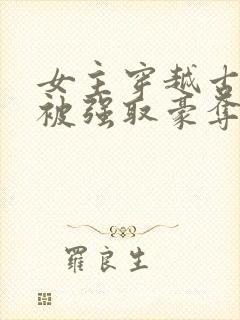 女主穿越古
被强取豪夺
羅良生